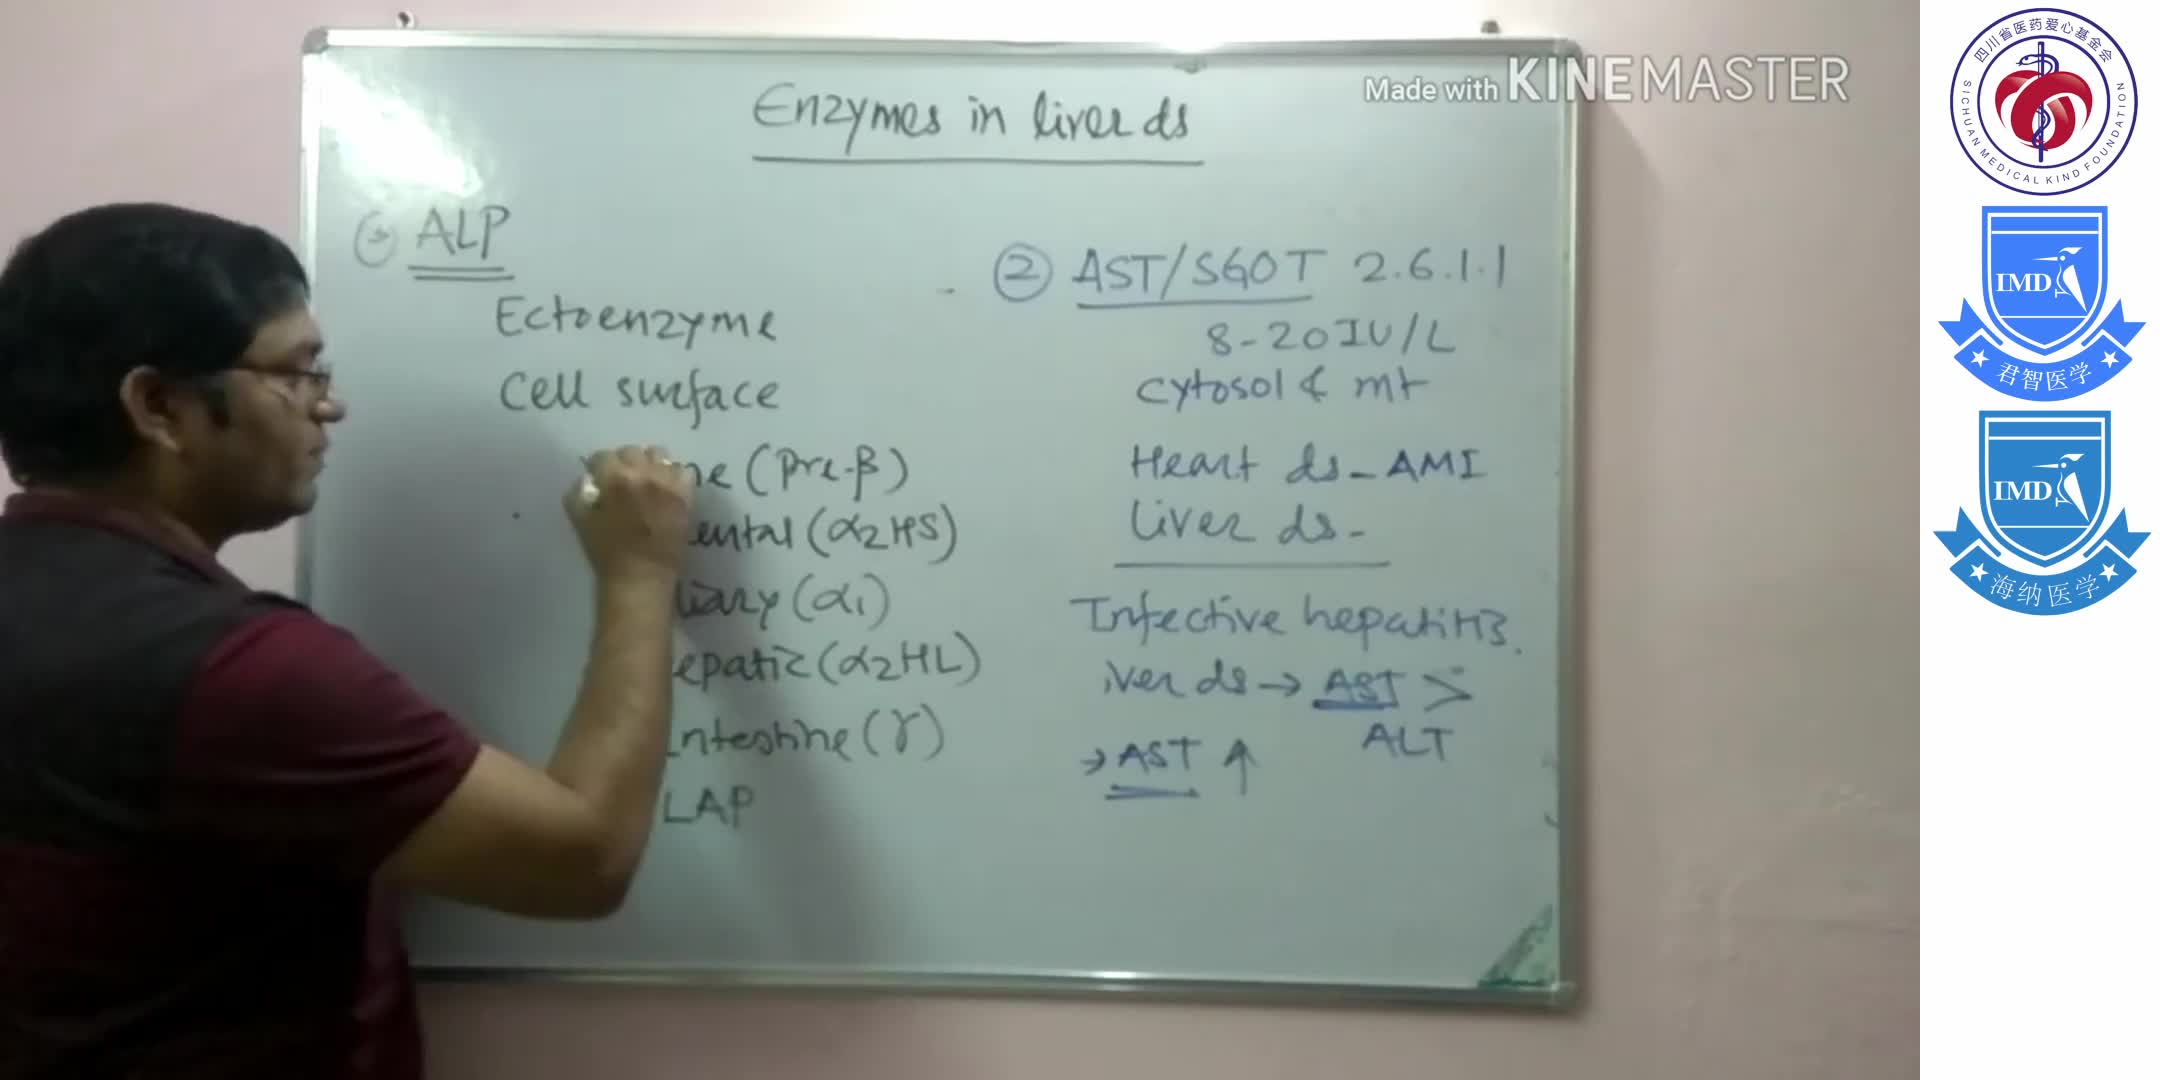 Made with KINEMASTER
Enzymes in liver ds
ALP
Ectoenzyme
Cell surface
ne (Pre-β)
ental (α2HS)
liary (α1)
epatic (α2HL)
Intestine (γ)
LAP
② AST/SGOT 2.6.1.1
8-20 IU/L
Cytosol & mt
Heart ds - AMI
Liver ds -
Infective hepatitis.
iver ds → AST >
ALT
→ AST ↑
四川省医药爱心基金会
SICHUAN MEDICAL KIND FOUNDATION
IMD
君智医学
IMD
海纳医学